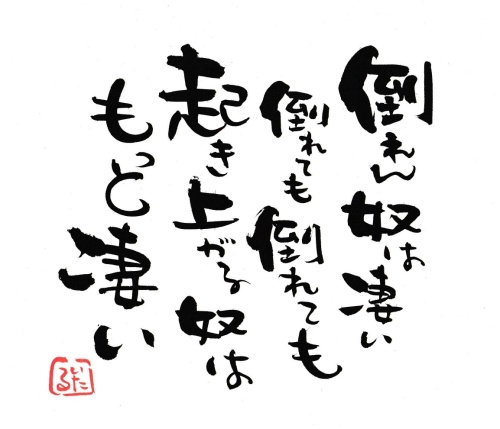 倒れん奴は凄い
倒れても倒れても
起き上がる奴は
もっと凄い